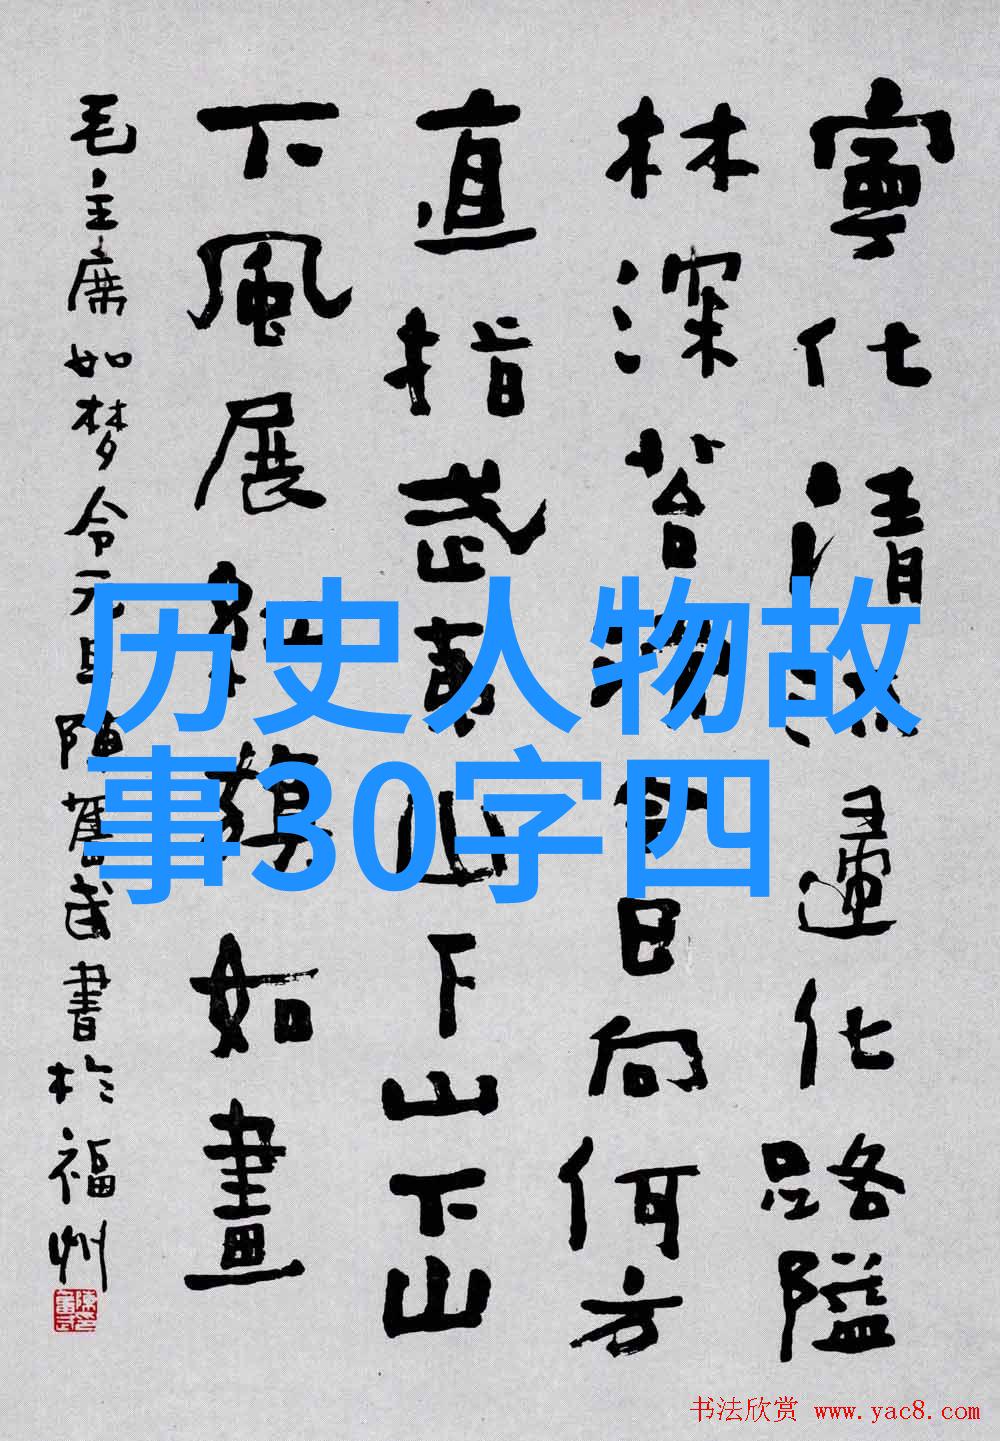 寧化清流歸化路隘
林深苔滑今日向何方
直指武夷山下山下山
下風展紅旗如畫
毛主席如梦令元旦陳奮武書於福州
历史人物故
事30字四
书法欣赏 www.yac8.com